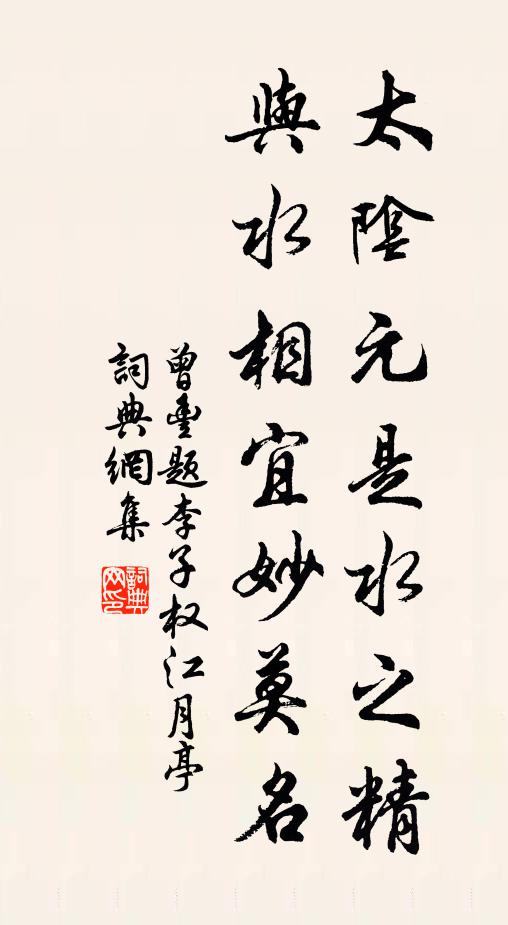 太陰元是水之精
與水相宜妙莫名
曾豐題李子权江月亭
詞典網集
詞典网印